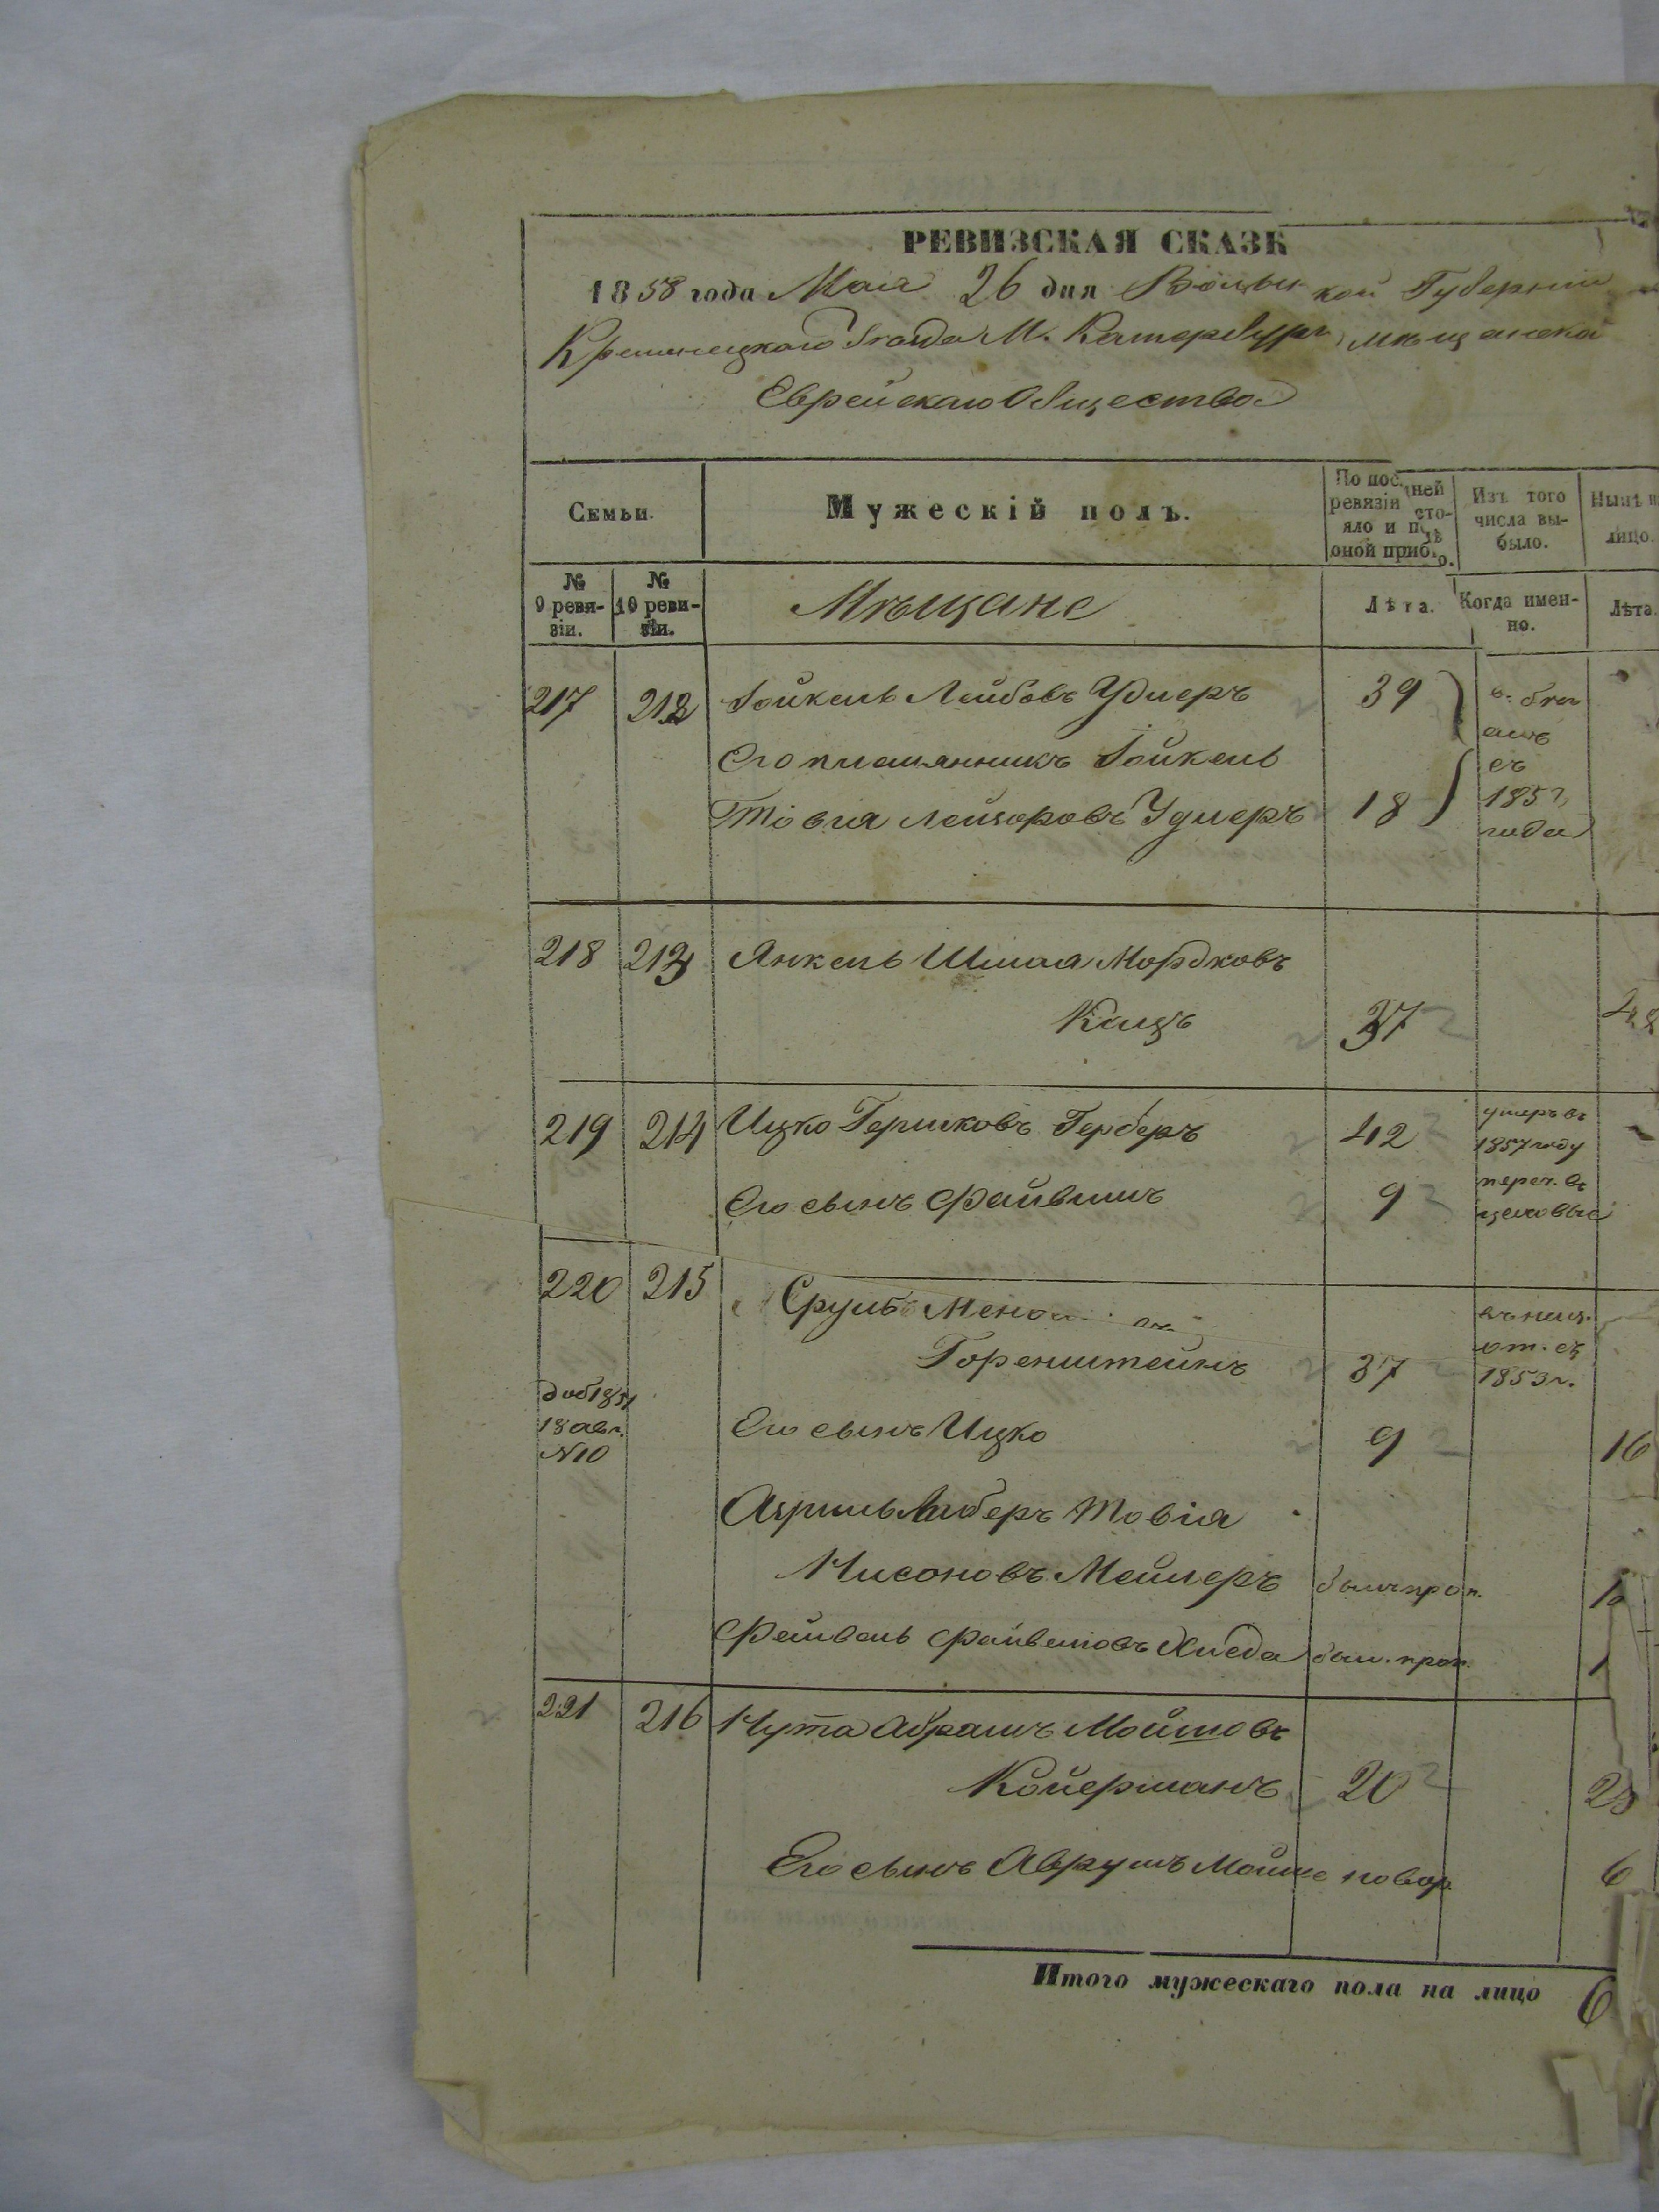 РЕВИЗСКАЯ СКАЗК
1858 года Мая 26 дня Волын кой Губерніи
Кременецкаго уезда М. Катербургъ мѣщанска
Еврейскаго Общества
Семьи.
Мужескій полъ.
По пос. дней
ревизіи сто-
яло и п лѣ
оной приб. о.
Изъ того
числа вы-
было.
Нынѣ н
лицо.
№
9 реви-
зіи.
№
10 реви-
зіи.
Мѣщане
Лѣта.
Когда имен-
но.
Лѣта.
217 212 Іойкель Лейбовъ Удлеръ 39
Его племянникъ Іойкель
Товія Лейзоровъ Удлеръ 18
въ
съ
185
года
218 213 Янкель Шмая Мордковъ
Кацъ 37
219 214 Ицко Гершковъ Герберъ 42
умеръ въ
1857 году
Его сынъ Файвишъ 9
переч. въ
цеховые
220 215 Сруль
Горенштейнъ 37
от. съ
1853 г.
доб 1851
18 авг.
№10
Его сынъ Ицко 9 16
Азриль Либеръ Товія
Нисоновъ Мейлеръ был. проп.
Фейвель Файвешовъ был. проп.
221 216 Нута Абрамъ Мошковъ
Койерманъ 20 28
Его сынъ Аврумъ Мошке новор. 6
Итого мужескаго пола на лицо 6